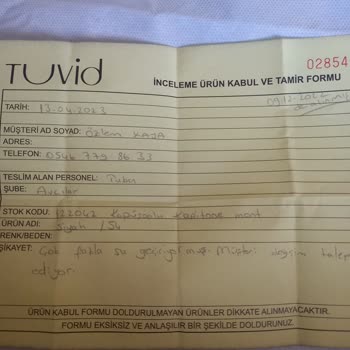 TUvid
İNCELEME ÜRÜN KABUL VE TAMİR FORMU
02854
TARİH: 13.04.2023
09.12.2022
MÜŞTERİ AD SOYAD: Özlem KAYA
ADRES:
TELEFON: 0546 779 86 33
TESLİM ALAN PERSONEL:
ŞUBE: Avcılar
STOK KODU: 122042 Kapüşonlu Kapitone mont
ÜRÜN ADI: Siyah / 54
RENK/BEDEN:
ŞİKAYET: Çok fazla su geçiriyormuş. Müşteri değişim talep
ediyor.
ÜRÜN KABUL FORMU DOLDURULMAYAN ÜRÜNLER DİKKATE ALINMAYACAKTIR.
FORMU EKSİKSİZ VE ANLAŞILIR BİR ŞEKİLDE DOLDURUNUZ.